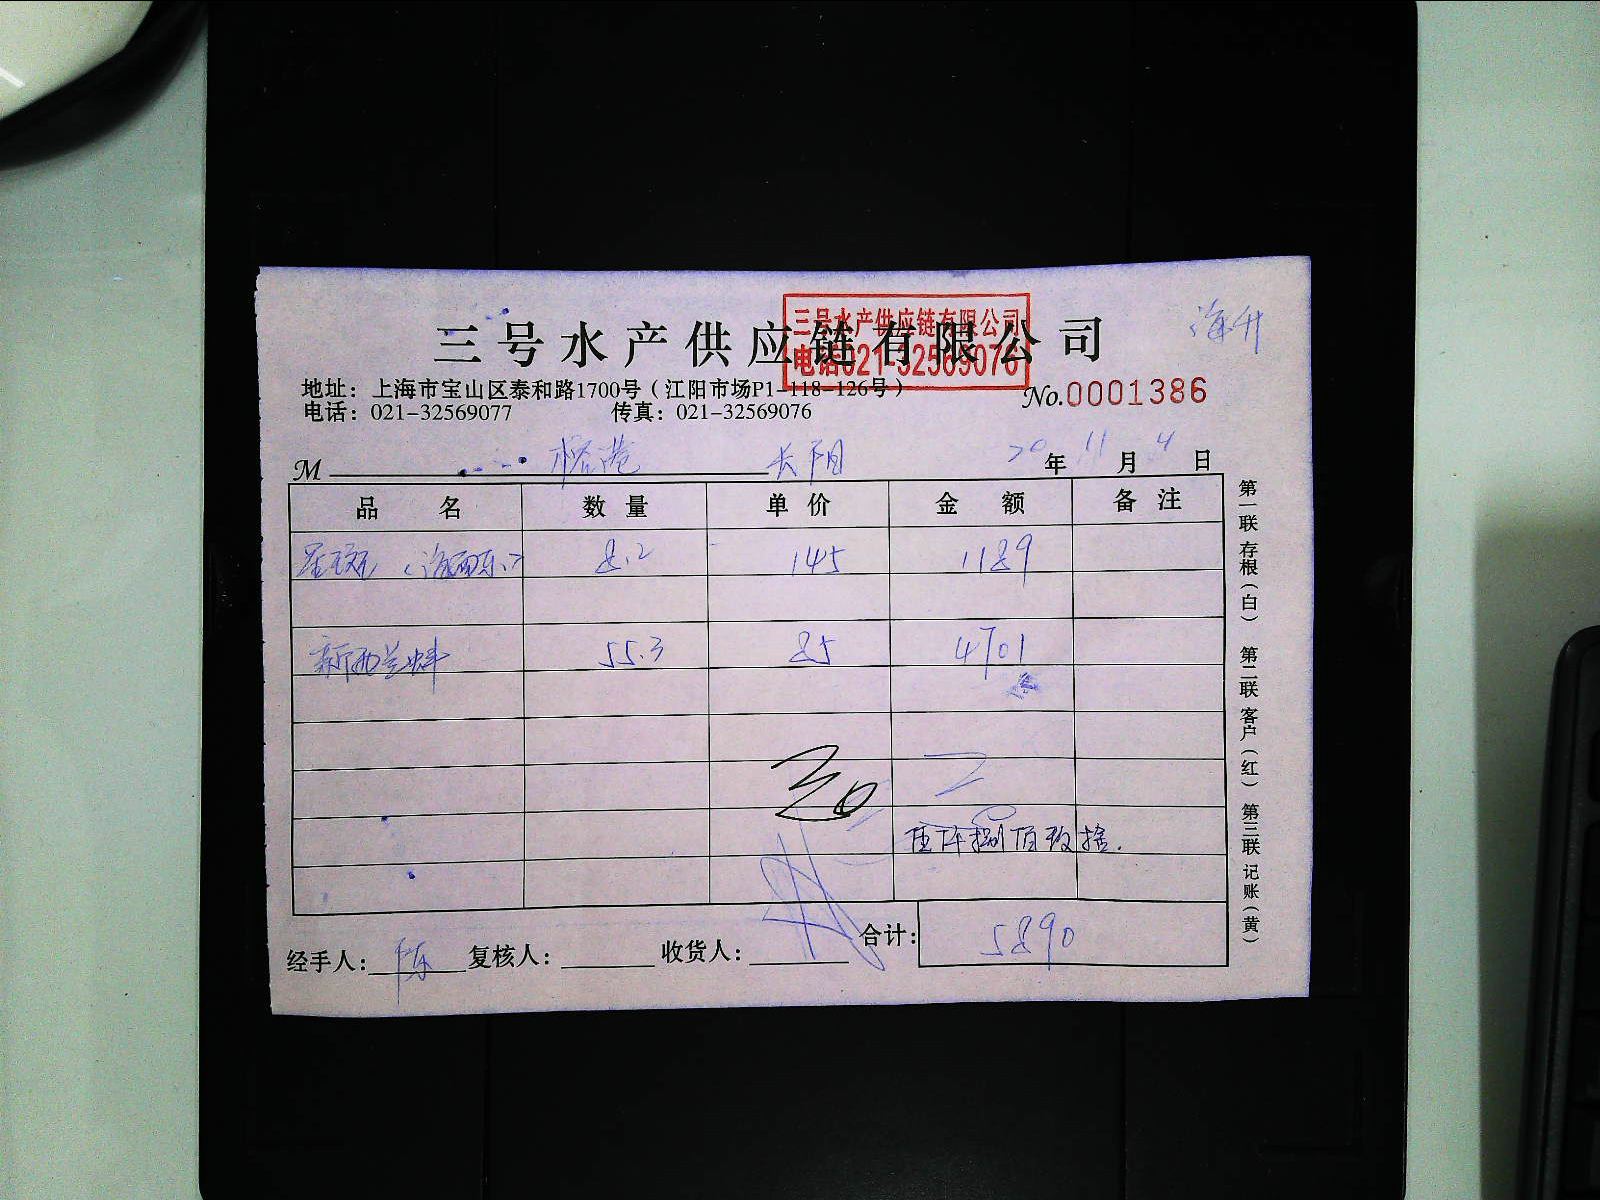 三号水产供应链有限公司
三号水产供应链有限公司
电话021-32569076
海升
地址：上海市宝山区泰和路1700号（江阳市场P1-118-126号）
No.0001386
电话：021-32569077 传真：021-32569076
M 榕港 长阳 20年11月4日
品名 数量 单价 金额 备注
星斑 8.2 145 1189
新西兰蚌 55.3 85 4701
伍仟捌佰玖拾.
经手人：陈 复核人： 收货人： 合计：5890
第一联 存根（白） 第二联 客户（红） 第三联 记账（黄）